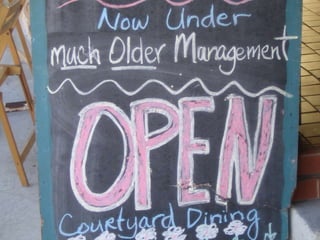 Now Under
much Older Management
OPEN
Courtyard Dining